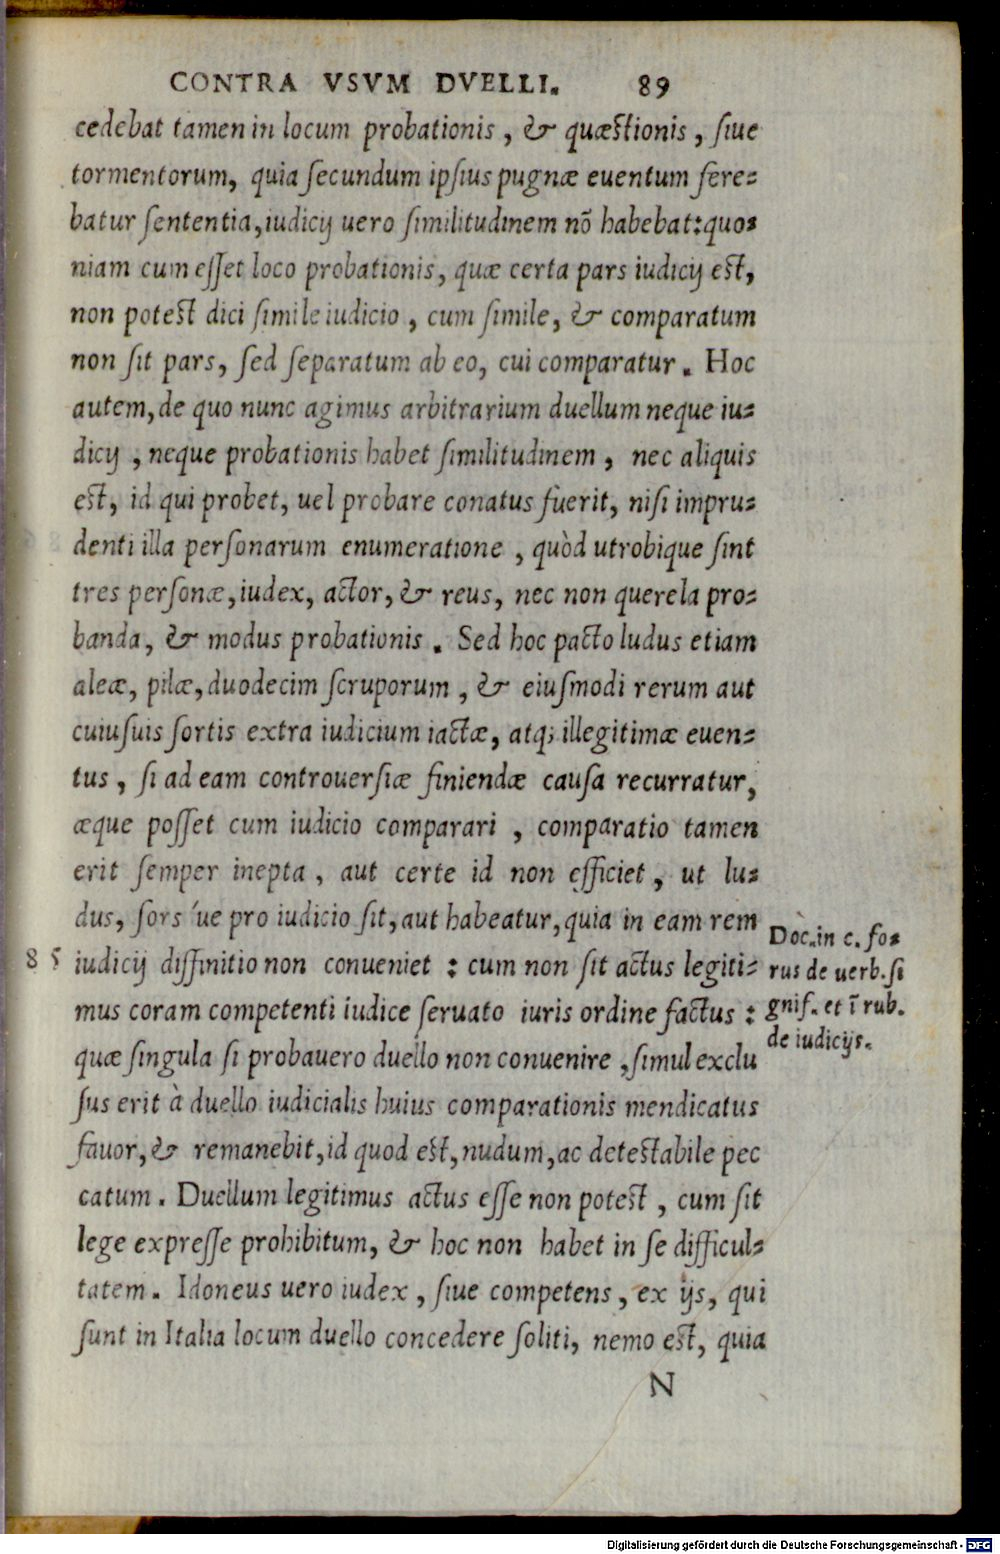 CONTRA VSVM DVELLI. 89
cedebat tamen in locum probationis, & quæstionis, ſiue
tormentorum, quia ſecundum ipſius pugnæ euentum fere-
batur ſententia, iudicij uero ſimilitudinem nō habebat: quo-
niam cum eſſet loco probationis, quæ certa pars iudicij est,
non potest dici ſimile iudicio, cum ſimile, & comparatum
non ſit pars, ſed ſeparatum ab eo, cui comparatur. Hoc
autem, de quo nunc agimus arbitrarium duellum neque iu-
dicij, neque probationis habet ſimilitudinem, nec aliquis
est, id qui probet, uel probare conatus fuerit, niſi impru-
denti illa perſonarum enumeratione, quòd utrobique ſint
tres perſonæ, iudex, actor, & reus, nec non querela pro-
banda, & modus probationis. Sed hoc pacto ludus etiam
aleæ, pilæ, duodecim ſcruporum, & eiuſmodi rerum aut
cuiuſuis ſortis extra iudicium iactæ, atq; illegitimæ euen-
tus, ſi ad eam controuerſiæ finiendæ cauſa recurratur,
æque poſſet cum iudicio comparari, comparatio tamen
erit ſemper inepta, aut certe id non efficiet, ut lu-
dus, ſors 've pro iudicio ſit, aut habeatur, quia in eam rem
85 iudicij diffinitio non conueniet: cum non ſit actus legiti-
mus coram competenti iudice ſeruato iuris ordine factus:
quæ ſingula ſi probauero duello non conuenire, ſimul exclu
ſus erit à duello iudicialis huius comparationis mendicatus
fauor, & remanebit, id quod est, nudum, ac detestabile pec
catum. Duellum legitimus actus eſſe non potest, cum ſit
lege expreſſe prohibitum, & hoc non habet in ſe difficul-
tatem. Idoneus uero iudex, ſiue competens, ex ijs, qui
ſunt in Italia locum duello concedere ſoliti, nemo est, quia
N
Doc. in c. fo-
rus de uerb. ſi
gnif. et ī rub.
de iudicijs.
Digitalisierung gefördert durch die Deutsche Forschungsgemeinschaft - DFG